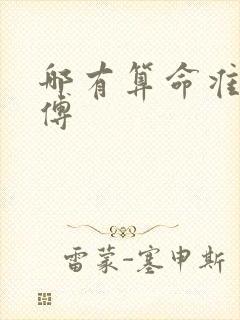 哪有算命准
傅
雷蒙-塞申斯